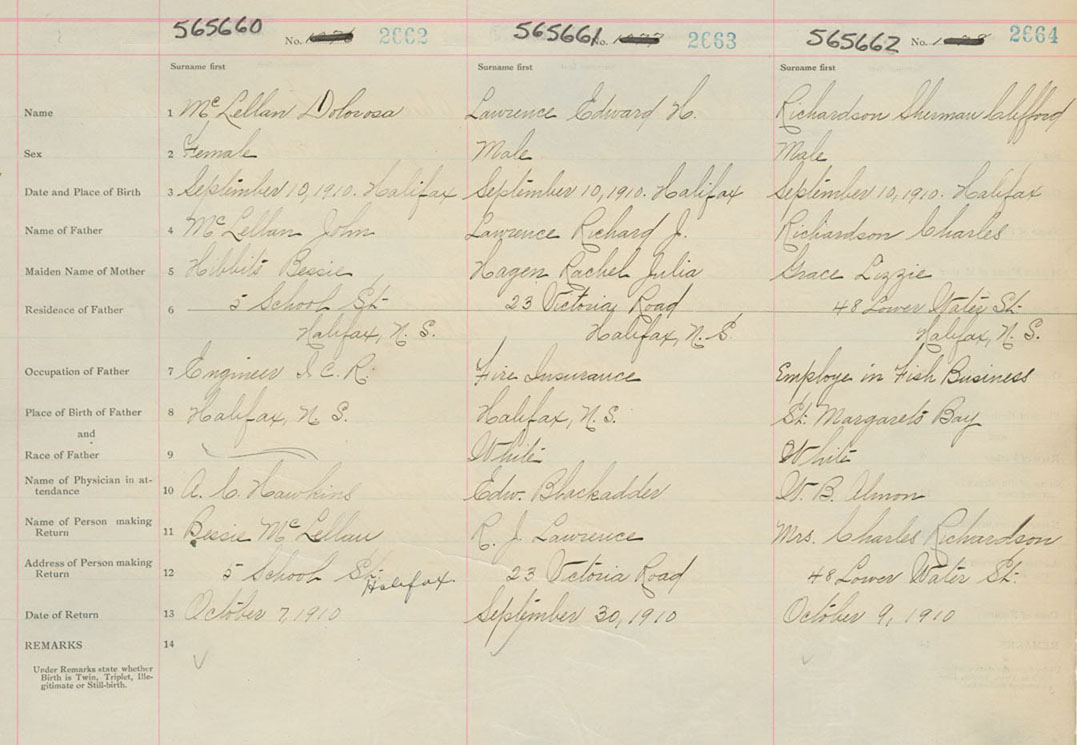 565660 No. 2662 565661 No. 2663 565662 No. 2664
Surname first Surname first Surname first
Name 1 McLellan Dolorosa Lawrence Edward H. Richardson Sherman Clifford
Sex 2 Female Male Male
Date and Place of Birth 3 September 10, 1910. Halifax September 10, 1910. Halifax September 10, 1910. Halifax
Name of Father 4 McLellan John Lawrence Richard J. Richardson Charles
Maiden Name of Mother 5 Hibbits Bessie Hagen Rachel Julia Grace Lizzie
Residence of Father 6 5 School St. 23 Victoria Road 48 Lower Water St.
Halifax, N. S. Halifax, N. S. Halifax, N. S.
Occupation of Father 7 Engineer I. C. R. Fire Insurance Employe in Fish Business
Place of Birth of Father 8 Halifax, N. S. Halifax, N. S. St. Margarets Bay
and
Race of Father 9 White White
Name of Physician in at-
tendance 10 A. C. Hawkins Edw. Blackadder W. B. Almon
Name of Person making
Return 11 Bessie McLellan R. J. Lawrence Mrs. Charles Richardson
Address of Person making
Return 12 5 School St. Halifax 23 Victoria Road 48 Lower Water St.
Date of Return 13 October 7, 1910 September 30, 1910 October 9, 1910
REMARKS 14
Under Remarks state whether
Birth is Twin, Triplet, Ille-
gitimate or Still-birth.